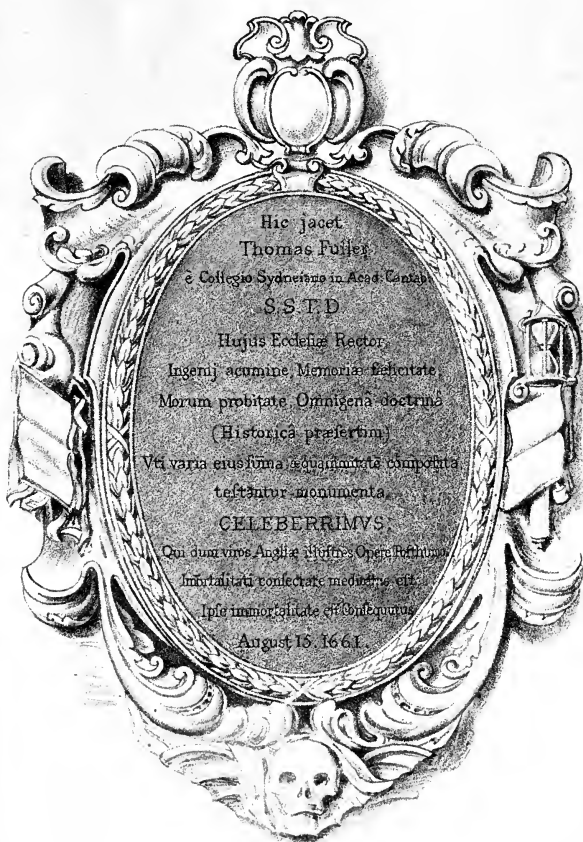 Hic jacet
Thomas Fuller
è Collegio Sydneiano in Acad: Cantab:
S.S.T.D
Hujus Ecclesiæ Rector,
Ingenij acumine, Memoriæ fælicitate,
Morum probitate, Omnigenâ doctrinâ
(Historicâ præsertim)
Vti varia eius sũma æquanimitate composita
testãntur monumenta,
CELEBERRIMVS.
Qui dum viros Angliæ illustres Opere Posthumo
Imõrtalitati consecrare meditatus est.
Ipse immortalitatẽ est Consequutus
August 15. 1661.